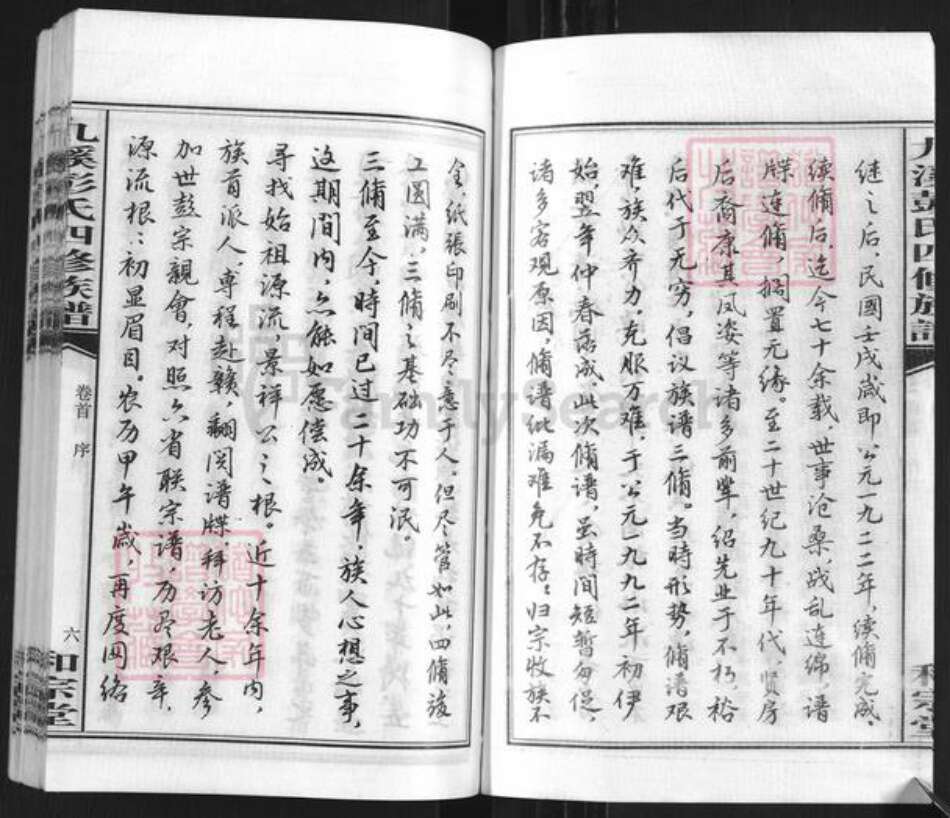 九溪彭氏四修族譜
和宗堂
继之后,民國壬戌歲即公元一九二二年,续脩完成。
续脩后,迄今七十余载,世事沧桑,战乱连绵,谱
牒连脩,搁置无缘。至二十世纪九十年代,贤房
后裔康其凤姿等诸多前辈,绍先业于不朽,裕
后代于无穷,倡议族谱三脩。当時形势,脩谱艰
难,族众齐力,克服万难,于公元一九九二年初伊
始,翌年仲春荡成,此次脩谱,虽時间短暂匆促,
诸多客观原因,脩谱纰漏难免不存。归宗收族不
全,纸張印刷不尽意于人,但尽管如此,四脩竣
工圆满,三脩之基础功不可泯。
三脩至今,時間已过二十余年,族人心想之事,
这期间内,亦能如愿偿成。
寻找始祖源流,景祥公之根。近十余年内,
族首派人專程赴赣,翻阅谱牒,拜访老人,参
加世彭宗親會,对照六省联宗谱,历尽艰辛,
源流根根初显眉目。农历甲午歲,再度网络
九溪彭氏四修族譜
卷首 序
六
和宗堂
FamilySearch